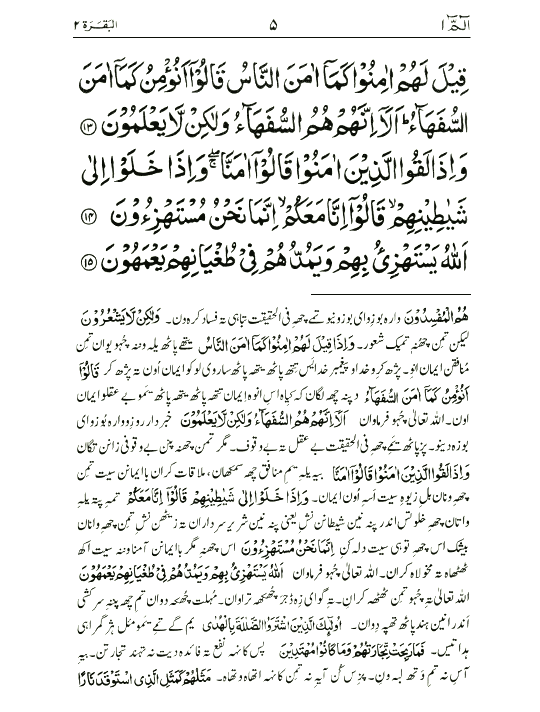 الٓمّٓ ١ ۵ البَقَرَة ٢
قِيْلَ لَهُمْ اٰمِنُوْا كَمَاۤ اٰمَنَ النَّاسُ قَالُوْۤا اَنُؤْمِنُ كَمَاۤ اٰمَنَ
السُّفَهَآءُ ؕ اَلَاۤ اِنَّهُمْ هُمُ السُّفَهَآءُ وَلٰكِنْ لَّا يَعْلَمُوْنَ ۝۱۳
وَاِذَا لَقُوا الَّذِيْنَ اٰمَنُوْا قَالُوْۤا اٰمَنَّا ۚۖ وَاِذَا خَلَوْا اِلٰى
شَيٰطِيْنِهِمْ ۙ قَالُوْۤا اِنَّا مَعَكُمْ ۙ اِنَّمَا نَحْنُ مُسْتَهْزِءُوْنَ ۝۱۴
اَللّٰهُ يَسْتَهْزِئُ بِهِمْ وَيَمُدُّهُمْ فِيْ طُغْيَانِهِمْ يَعْمَهُوْنَ ۝۱۵
هُمُ الْمُفْسِدُوْنَ واره بوزِوای بوزونیو تمے چھِ فی الحقیقت تباہی تہ فساد کرہ ون۔ وَلٰكِنْ لَّا يَشْعُرُوْنَ
لیکن تمن چھنہٕ تمیک شعور۔ وَاِذَا قِيْلَ لَهُمْ اٰمِنُوْا كَمَاۤ اٰمَنَ النَّاسُ یتھے پاٹھ یلہ ونہ چُہویوان تمن
منافقن ایمان انو۔ پژھ کرو خداو پیغمبر خدایس تتھ پاٹھ یتھہ پاٹھ ساروی لوکو ایمان اون تہ پژھ کر قَالُوْۤا
اَنُؤْمِنُ كَمَاۤ اٰمَنَ السُّفَهَآءُ دپنہ چھہ لگان کہ کیاہ اس انوہ ایمان تتھہ پاٹھ یتھہ پاٹھ یموبے عقلو ایمان
اون۔ اللہ تعالیٰ چُہو فرماوان اَلَاۤ اِنَّهُمْ هُمُ السُّفَهَآءُ وَلٰكِنْ لَّا يَعْلَمُوْنَ خبردار روزِ دوارہ بوزِوای
بوزہ دینو۔ پزپاٹھ یمے چھہ فی الحقیقت بے عقل تہ بے وقوف۔ مگر تمن چھنہ پنن بے وقوفی زانن تگان
وَاِذَا لَقُوا الَّذِيْنَ اٰمَنُوْا قَالُوْۤا اٰمَنَّا بیہ یلہ یم منافق چھہ سمکھان، ملاقات کران باایمانن سیت تمن
چھہ ونان دِل زیوہ سیت اَسہ اون ایمان۔ وَاِذَا خَلَوْا اِلٰى شَيٰطِيْنِهِمْ قَالُوْۤا اِنَّا مَعَكُمْ تمہ پتہ یلہ
واتان چھہ خلوتس اندر پنہ نین شیطانن نش یعنی پنہ نین شریر سرداران تہ زیٹھن نش تمن چھہ وانان
بیشک اس چھہ توہی سیت دلہ کن اِنَّمَا نَحْنُ مُسْتَهْزِءُوْنَ اس چھنہ مگر باایمانن آمنا وننہ سیت اکھ
ٹھٹھاہ تہ مخولاہ کران۔ اَللّٰهُ يَسْتَهْزِئُ بِهِمْ وَيَمُدُّهُمْ فِيْ طُغْيَانِهِمْ يَعْمَهُوْنَ
اللہ تعالیٰ تہ چُہو تمن ٹھٹھہ کران۔ تہ گوای زِہ تراوان۔ مُہلت دوان تم چھہ پننہ سرکشی
اندر دوان۔ اُولٰٓئِكَ الَّذِيْنَ اشْتَرَوُا الضَّلٰلَةَ بِالْهُدٰى یم گے تمے یمو مُل ہژ گمراہی
ہدایتس۔ فَمَا رَبِحَتْ تِّجَارَتُهُمْ وَمَا كَانُوْا مُهْتَدِيْنَ پس کانہہ نفع تہ فائدہ دیت نہ تہند تجارتن۔ بیہ
آس نہ تم وتھ لبہ ون۔ تمن کانہہ اتھاہ وتھاہ۔ مَثَلُهُمْ كَمَثَلِ الَّذِى اسْتَوْقَدَ نَارًا